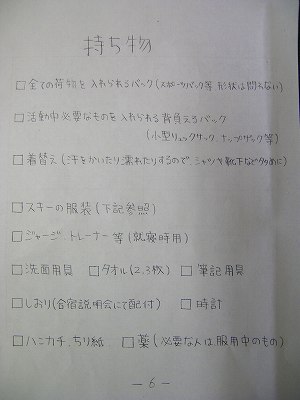 持ち物
□全ての荷物を入れられるバック(スポーツバック等 形状は問わない)
□活動中必要なものを入れられる背負えるバック
(小型リュックサック、ナップザック等)
□着替え(汗をかいたり濡れたりするので、シャツや靴下など多めに)
□スキーの服装(下記参照)
□ジャージ、トレーナー等(就寝時用)
□洗面用具 □タオル(2,3枚) □筆記用具
□しおり(合宿説明会にて配付) □時計
□ハンカチ、ちり紙 □薬(必要な人は、服用中のもの)
-6-